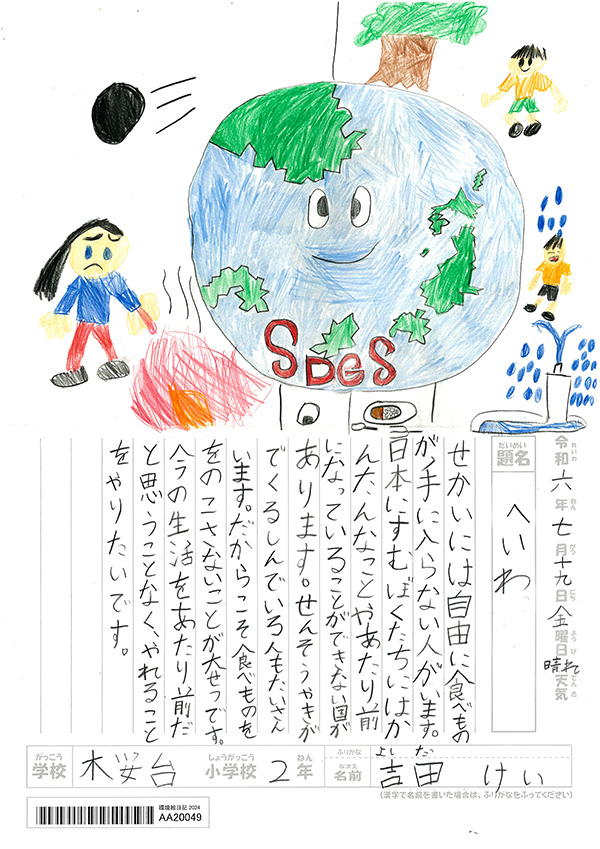 SDGS
令和六年七月十九日金曜日 天気 晴れ
れいわ ねん がつ にち ようび てんき
だいめい
題名 へいわ
せかいには自由に食べもの
が手に入らない人がいます。
日本にすむぼくたちにはか
んたんなことやあたり前
になっていることができない国が
あります。せんそうやきが
でくるしんでいる人もたくさん
います。だからこそ食べものを
をのこさないことが大せつです。
今の生活をあたり前だ
と思うことなく、やれること
をやりたいです。
がっこう しょうがっこう ねん ふりがな よしだ
学校 桜台 小学校 2年 なまえ 名前 吉田 けい
(漢字で名前を書いた場合は、ふりがなをふってください)
環境絵日記 2024
AA20049